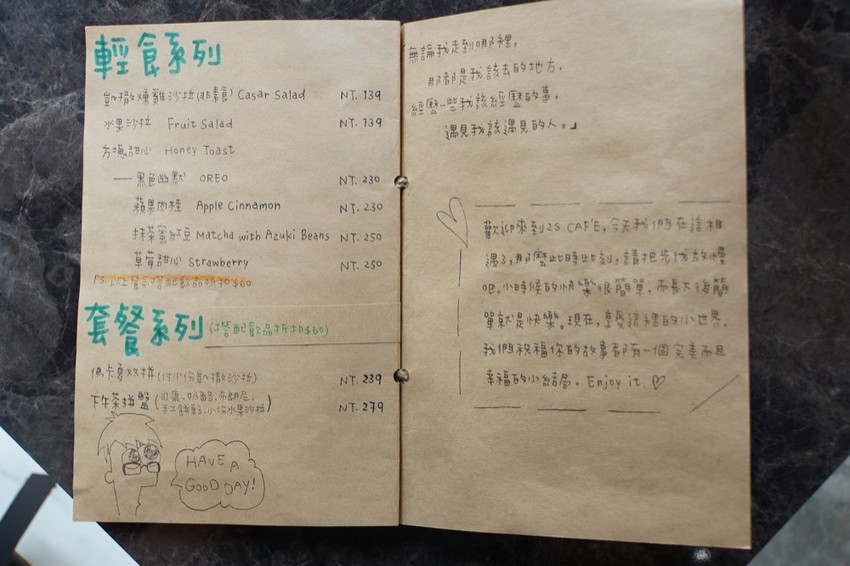 輕食系列
凱撒燻雞沙拉(非素食) Casar Salad NT. 139
水果沙拉 Fruit Salad NT. 139
方塊甜心 Honey Toast
——黑色幽默 OREO NT. 230
蘋果肉桂 Apple Cinnamon NT. 230
抹茶蜜紅豆 Matcha with Azuki Beans NT. 250
草莓甜心 Strawberry NT. 250
PS. 以上餐點搭配飲品折扣$60
套餐系列(搭配飲品折扣$60)
佛卡夏双拼(附小份凱撒沙拉) NT. 239
下午茶拼盤 NT. 279
手工餅乾、小份水果沙拉
HAVE A
GOOD DAY!
無論我走到哪裡,
那都是我該去的地方,
經歷一些我該經歷的事,
遇見我該遇見的人。」
歡迎來到2S CAFE, 今天我們在這相
遇了, 那麼此時此刻, 請把步伐放慢
吧。小時候的快樂很簡單, 而長大後簡
單就是快樂。現在, 享受這裡的小世界,
我們祝福你的故事都有一個完美而且
幸福的小結局。Enjoy it ♡